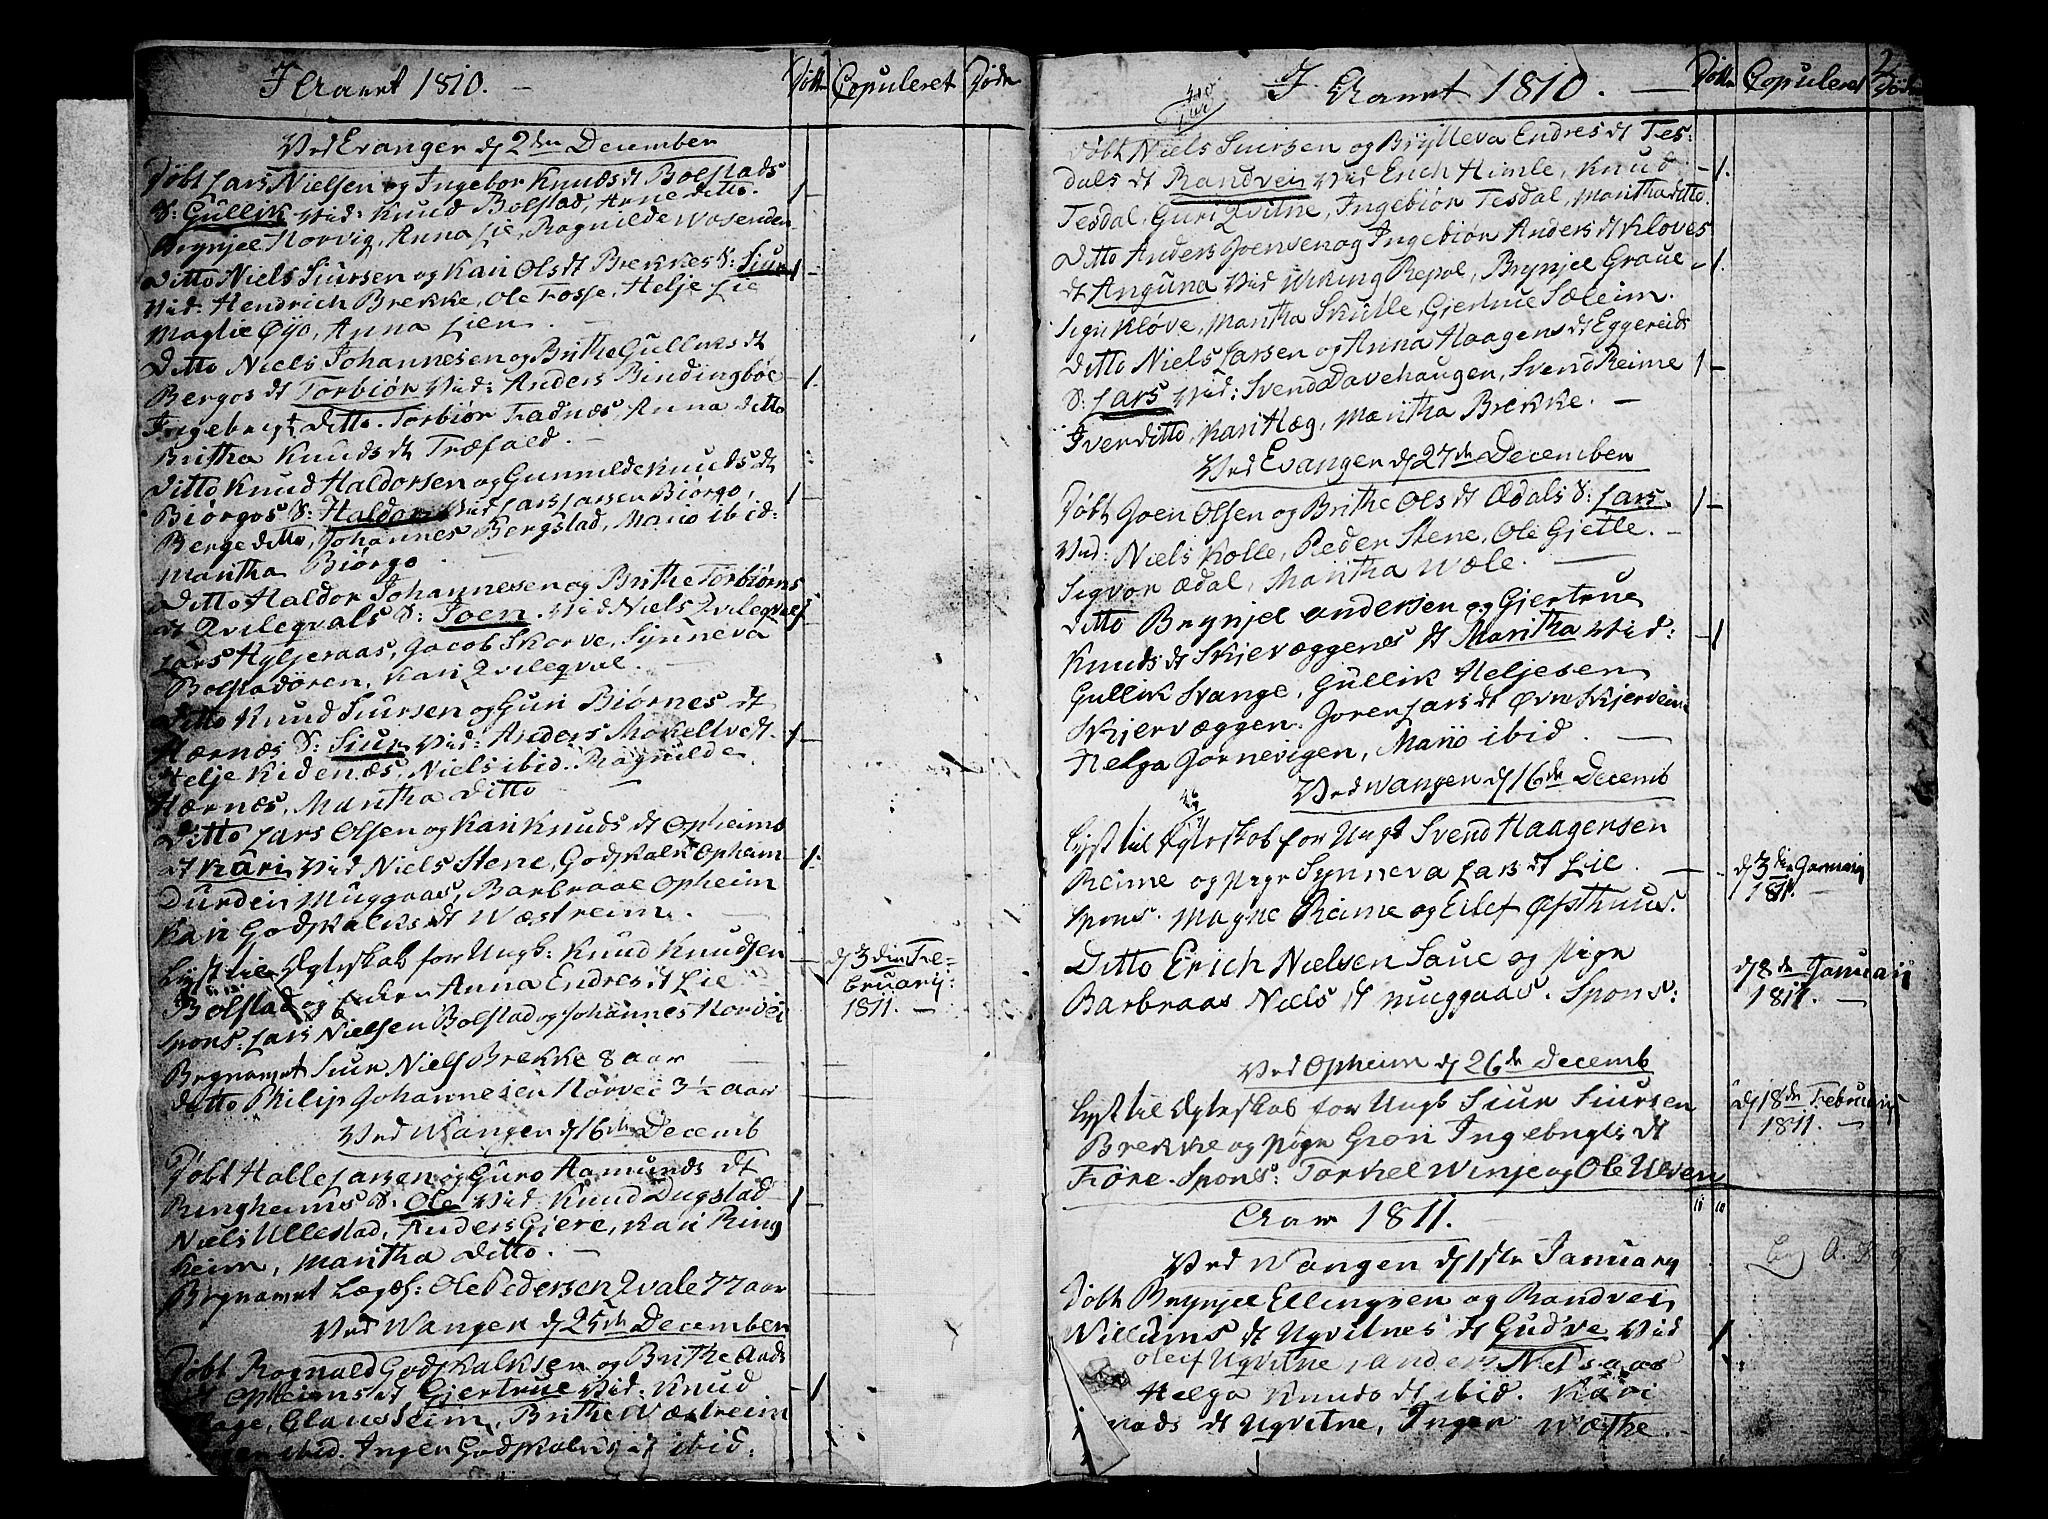 I Aaret 1810. —
Døbte
Copuleret
Døde
Ved Evanger d 2den December
Døbt Lars Nielsen og Ingebor Knuds dt Bolstads
S: Gullik Vid: Knud Bolstad, Arne ditto.
Brynjel Horvig, Anna Lie, Ragnilde Wosenden
Ditto Niels Siursen og Kari Ols dt Brekkes S: Siur 1 —
Vid: Hendrich Brekke, Ole Fosse, Helje Lie
Maglie Øyo, Anna Lien.
Ditto Niels Johannesen og Brithe Gulliks dt
Bergos dt Torbiør Vid: Anders Rindingbøe 1.
Ingebrigt Ditto. Torbiør Fadnes, Anna ditto
Britha Knuds dt Træfald. —
Ditto Knud Haldorsen og Gunnilde Knuds dt
Biørgos S: Haldor Vid Lars Larsen Biørgo, 1
Berge ditto, Johannes Bergstad, Mario ibid:
Maritha Biørgo.
Ditto Haldor Johannesen og Brithe Torbiørns
dt Qvileqvals S: Joen. Vid Niels Qvileqval 1
Lars Hyljeraas, Jacob Skorve, Synneva
Bolstadøren, Kari Qvileqval. —
Ditto Knud Siursen og Guri Biørnes dt
Hærnæs S: Siur Vid: Anders Mokeltvedt. 1 —
Helje Kidenæs, Niels ibid. Ragnilde
Hærnæs, Maritha Ditto
Ditto Lars Olsen og Kari Knuds dt Opheims
dt Kari Vid Niels Stene, Godskalk Opheim 1.
Durdei Muggaas, Barbraae Opheim
Kari Godskalks dt Wæstreim. —
Lyst til Egteskab for Ungk: Knud Knudsen
Bolstad og Anna Endres dt Lie
d 3die Fe-
bruary:
1811. —
Spons: Lars Nielsen Bolstad og Johannes Horvei
Begravet Siur Niels Brekke 8 aar
ditto Philip Johannesen Horvei 3 1/2 aar
Ved Wangen d 16de Decemb
Døbt Halle Larsen og Guro Aamunds dt
Ringheims S: Ole Vid: Knud Dugstad 1
Niels Ullestad, Anders Gjere, Kari Ring
heim, Maritha Ditto. —
Begravet Lægds: Ole Pedersen Qvale 77 aar
Ved Wangen d 25de December
Døbt Rognald Godskalksen og Brithe Ands
dt Opheims dt Gjertrue Vid: Knud 1
Claus Seim, Brithe Wæstreim
ibid. Inger Godskalks dt ibid:
I Aaret 1810. —
Døbte
Copuleret
Døde
Døbt Niels Siursen og Brylleva Endres dt Tes-
dals dt Randvei Vid Erich Himle, Knud 1.
Tesdal, Guri Qvitne, Ingebiør Tesdal, Maritha ditto.
Ditto Anders Joensen og Ingebiør Anders dt Kløves
dt Anguna Vid Wiking Repal, Brynjel Graue 1.
Sigri Kløve, Maritha Skulle, Gjertrue Sæleim.
Ditto Niels Larsen og Anna Haagens dt Eggereids
S: Lars Vid: Svend Davehaugen, Svend Reime 1 —
Iver ditto, Kari Hæg, Maritha Brekke. —
Ved Evanger d 27de December
Døbt Joen Olsen og Brithe Ols dt Ædals S: Lars 1 —
Vid: Niels Kolle, Peder Stene, Ole Gjetle. —
Sigvor Ædal, Maritha Wæle. —
Ditto Brynjel Andersen og Gjertrue
Knuds dt Skjevæggenes dt Maritha Vid: 1
Gullik Svange, Gullik Heljesen
Skjervæggen. Joren Lars dt Øvre Skjervein
Helga Gornevigen, Mario ibid. —
Ved Wangen d 16de Decemb
Lyst til Egteskab for Ungk Svend Haagensen
Reime og Pige Synneva Lars dt Lie. —
d 3die January
1811. —
Spons. Magne Reime og Eilef Øfsthuus.
Ditto Erich Nielsen Saue og Pige
Barbraae Niels dt Muggaas. Spons:
d 8de January
1811. —
Ved Opheim d 26de Decemb
Lyst til Egteskab for Ungk Siur Siursen
Brekke og Pige Gron Ingebrigts dt
Føre. Spons: Torkel Winje og Ole Ulven
d 18de February
1811. —
Aar 1811.
Ved Wangen d 1ste January
Døbt Brynjel Ellingsen og Randvei
Willums dt Ugvitnes dt Gudve Vid 1
Oleif Ugvitne, Anders Nelsaas
Helga Knuds dt ibid. Kari
dt Ugvitne, Inger Wæthe. —